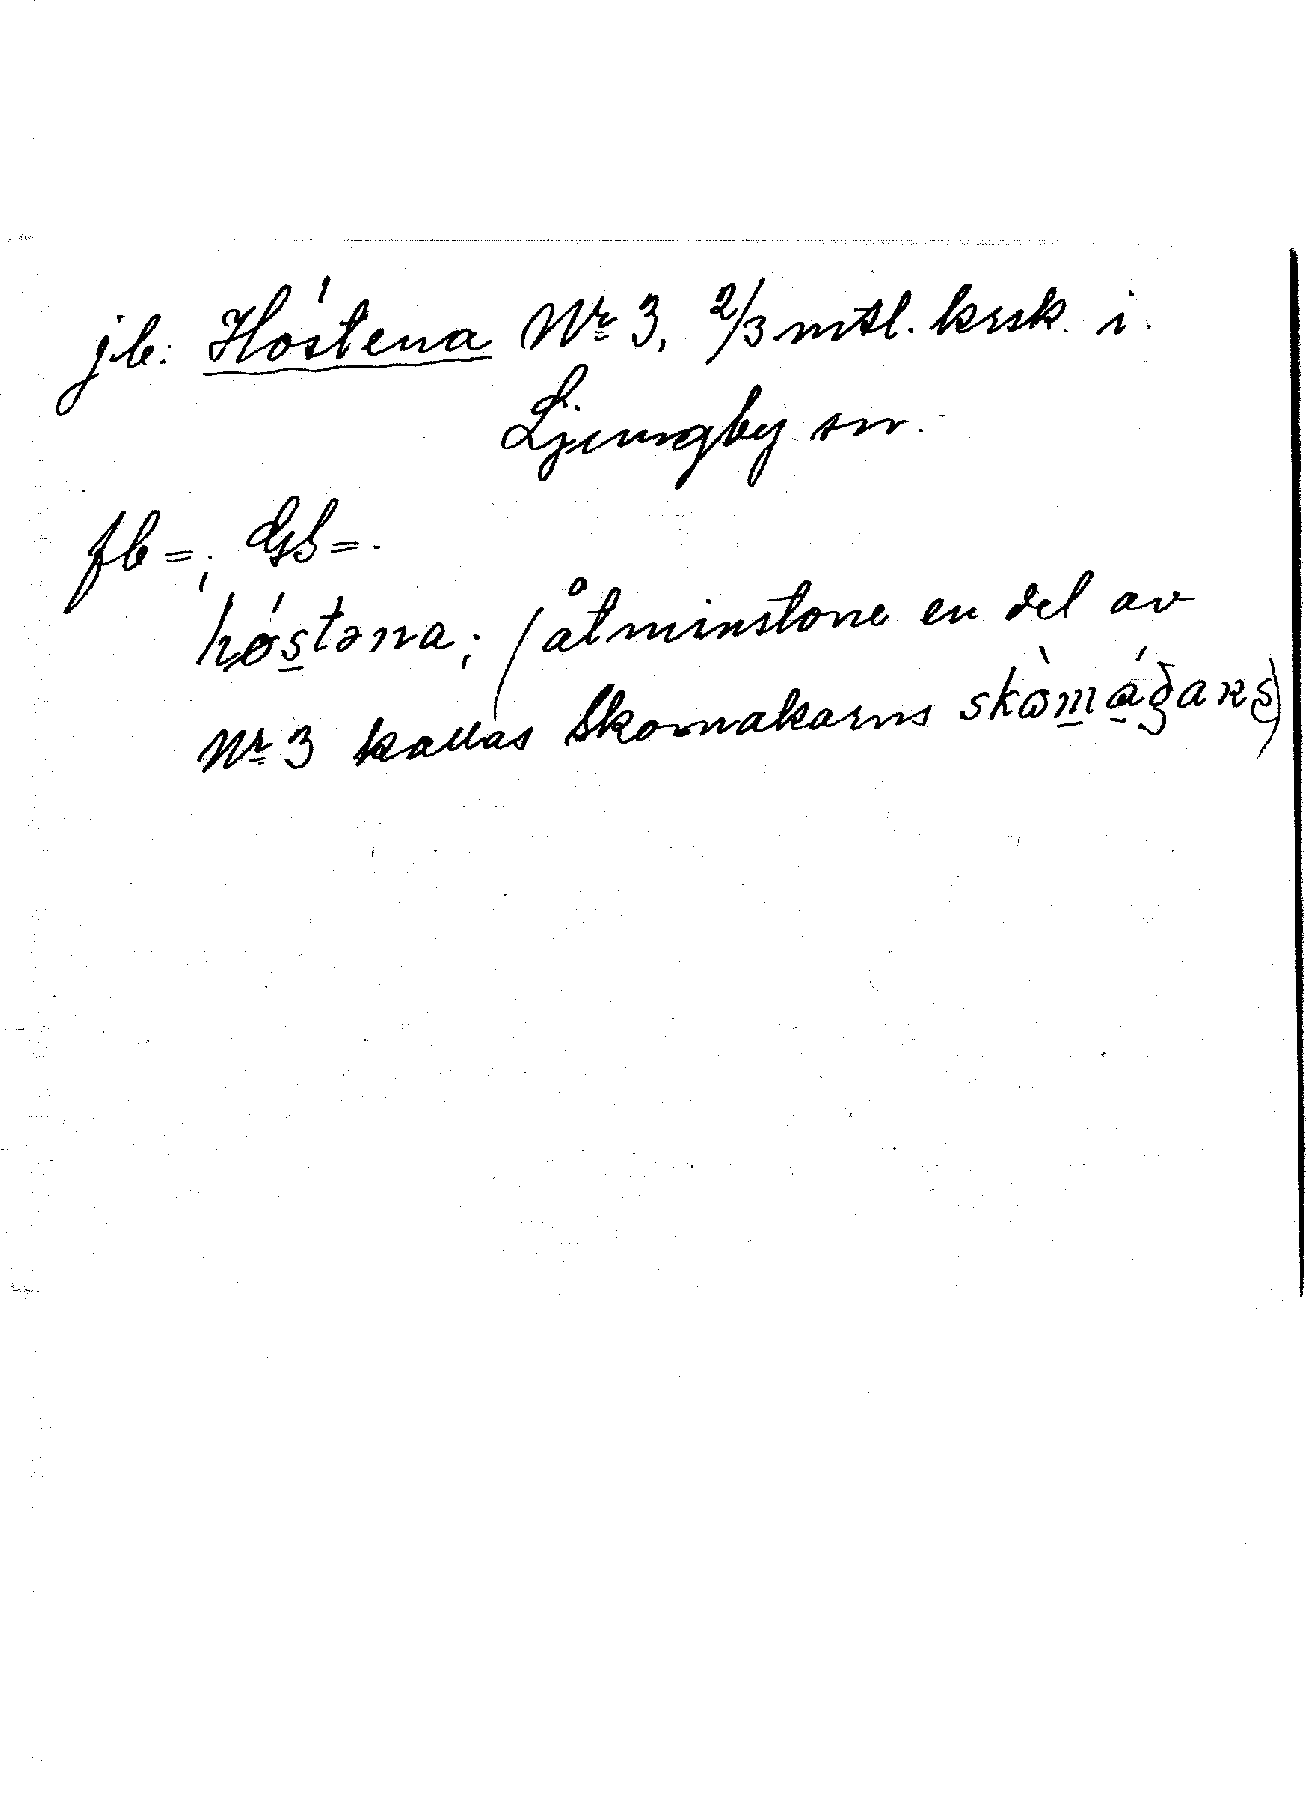 jb. Hóstena Nr 3, 2/3 mtl. krsk. i
Ljungby sn.
fb =; GS =.
hǿstəna; (åtminstone en del av
Nr 3 kallas Skomakarns skòmágaʀs)